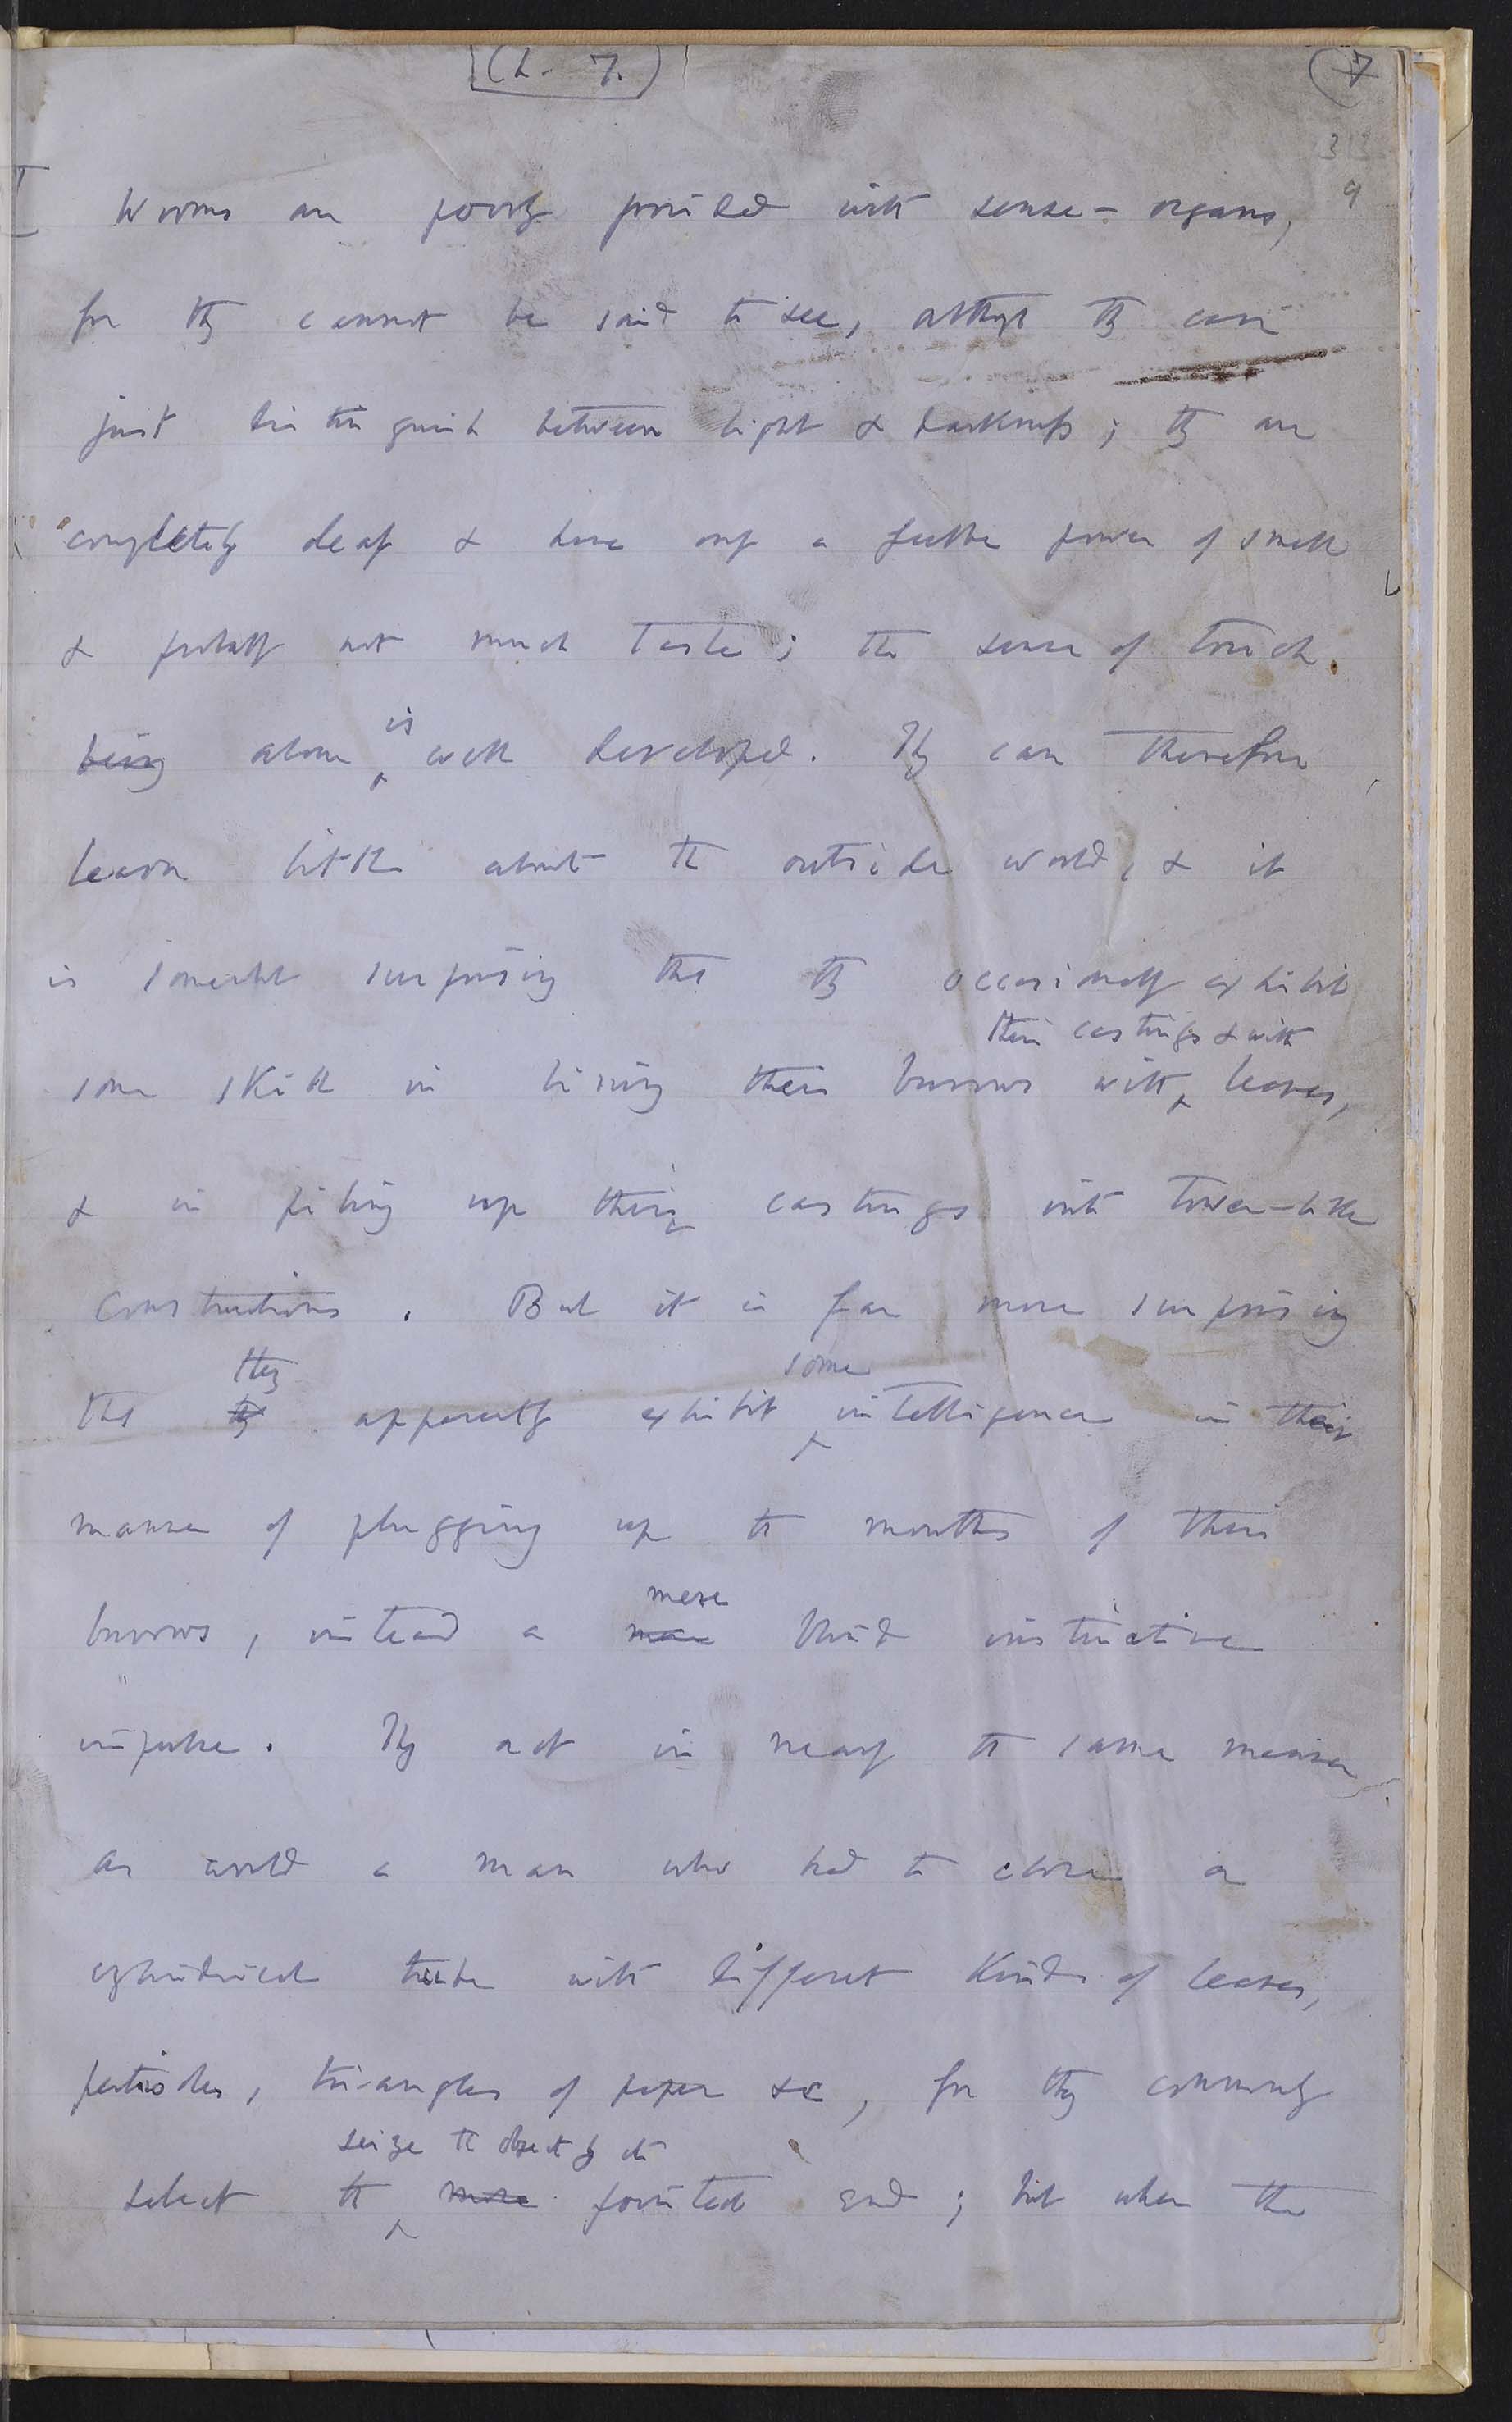 (Ch. 7.)
7
313
9
Worms are poorly provided with sense-organs,
for they cannot be said to see, although they can
just distinguish between light & darkness; they are
completely deaf & have only a feeble power of smell
& probably not much taste; the sense of touch
being alone is well developed. They can therefore
learn little about the outside world, & it
is somewhat surprising that they occasionally exhibit
their castings & with
some skill in lining their burrows with leaves,
& in piling up their castings into tower-like
constructions. But it is far more surprising
they some
that they apparently exhibit intelligence in their
manner of plugging up the mouths of their
mere
burrows, instead a blind instinctive
impulse. They act in nearly the same manner
as would a man who had to close a
cylindrical tube with different kinds of leaves,
petioles, triangles of paper &c, for they commonly
seize the object by its
select the more pointed end; but when the